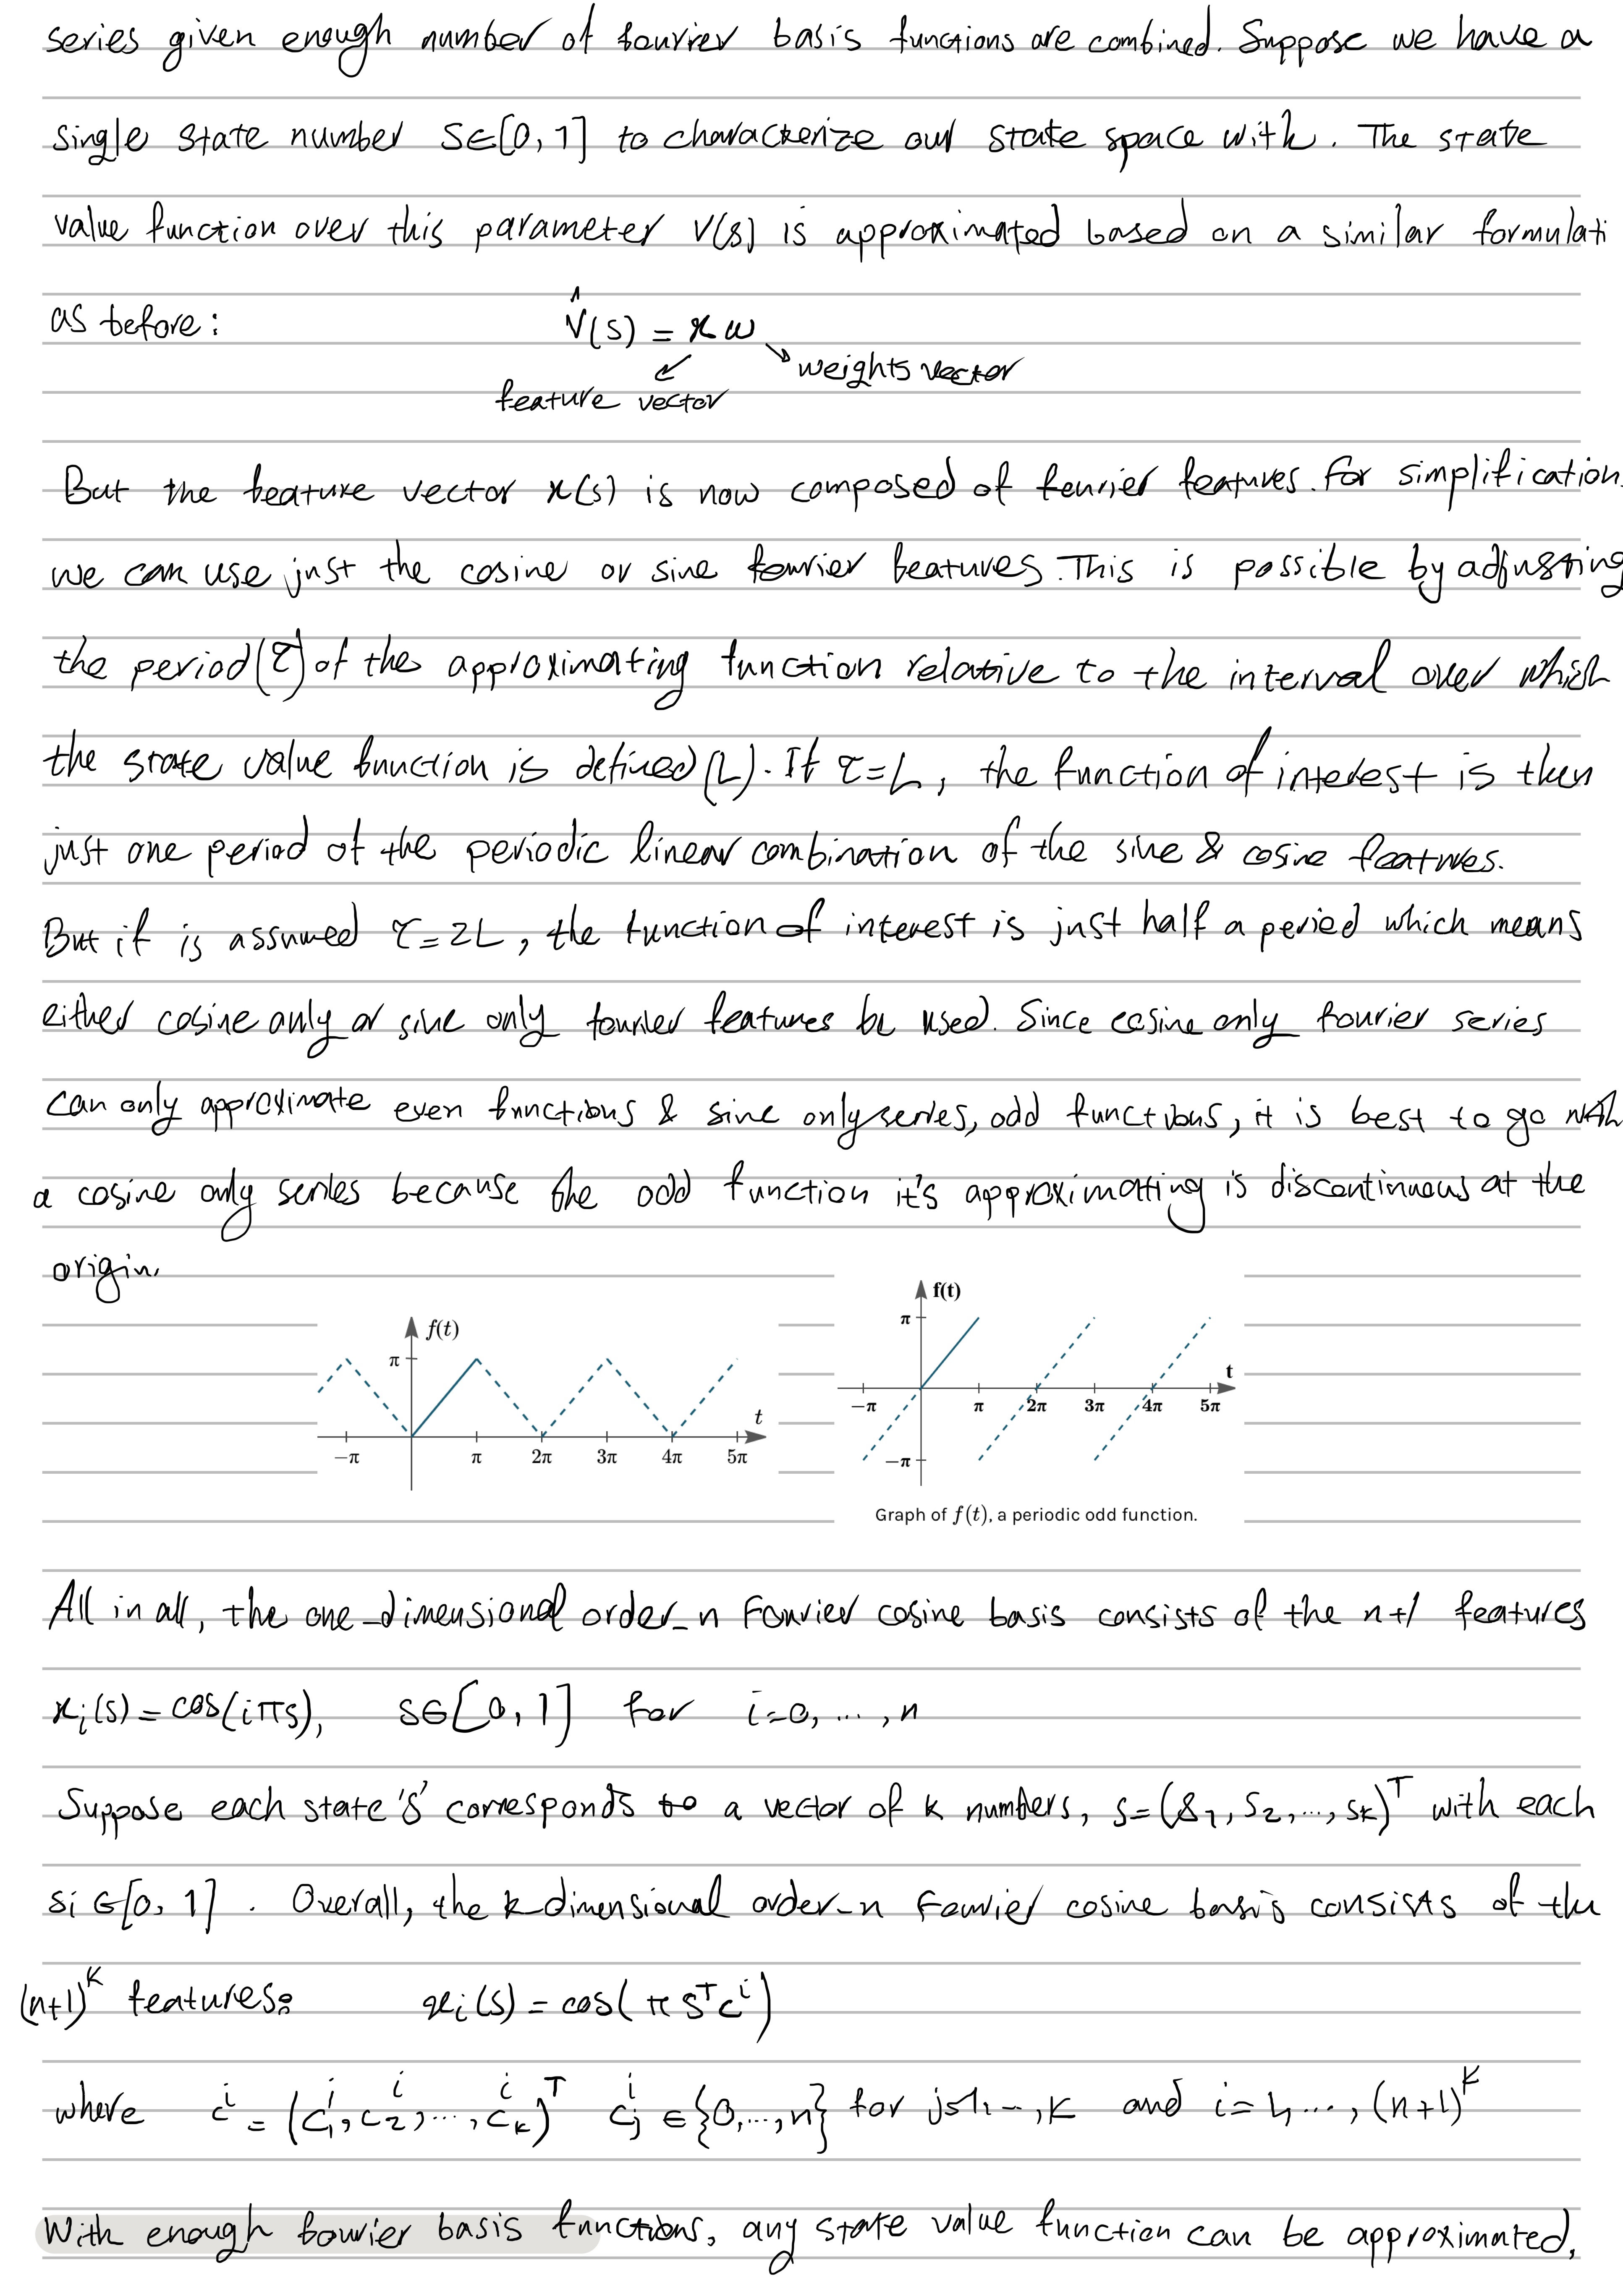 series given enough number of fourier basis functions are combined. Suppose we have a
single state number S∈[0,1] to characterize our state space with. The state
value function over this parameter V(s) is approximated based on a similar formulati
as before: V̂(s) = x w
weights vector
feature vector
But the feature vector x(s) is now composed of fourier features. For simplification
we can use just the cosine or sine fourier features. This is possible by adjusting
the period(τ) of the approximating function relative to the interval over which
the state value function is defined (L). If τ=L, the function of interest is then
just one period of the periodic linear combination of the sine & cosine features.
But if is assumed τ=2L, the function of interest is just half a period which means
either cosine only or sine only fourier features be used. Since cosine only fourier series
can only approximate even functions & sine only series, odd functions, it is best to go with
a cosine only series because the odd function it's approximating is discontinuous at the
origin.
f(t)
π
t
−π π 2π 3π 4π 5π
f(t)
π
t
−π π 2π 3π 4π 5π
−π
Graph of f(t), a periodic odd function.
All in all, the one-dimensional order-n Fourier cosine basis consists of the n+1 features
xᵢ(s) = cos(iπs), s∈[0,1] for i=0, ..., n
Suppose each state 's' corresponds to a vector of k numbers, s=(s₁, s₂, ..., sₖ)ᵀ with each
si ∈[0,1]. Overall, the k-dimensional order-n Fourier cosine basis consists of the
(n+1)ᵏ features: xᵢ(s) = cos(π sᵀcⁱ)
where cⁱ = (c₁ⁱ, c₂ⁱ, ..., cₖⁱ)ᵀ cⱼⁱ ∈ {0,...,n} for j=1, ..., k and i=1, ..., (n+1)ᵏ
With enough fourier basis functions, any state value function can be approximated.